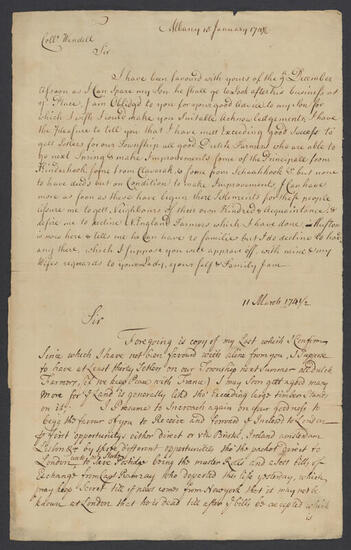 Albany 15 January 174½
Coll° Wendell
Sir
I have been favoured with yours of the 9 December
As soon as I Can Spare my Son he shall go to look after his business at
y° Place, I am Obliged to you for your good advice to my Son for
which I wish I could make you Suitable Acknowledgements, I have
the Pleasure to tell you that I have met Exceeding good Success to
gett Setlers for our Township all good Dutch Farmers who are able to
go next Spring & make Improvements some of the Principall from
Kinderhook, some from Claverak, & some from Schachkook &c but none
to have deeds but on Condition to make Improvements, I Can have
more as soon as these have begun there Setlements for these people
assure me to gett Neighbours of there own Kindred & acquaintance &
desire me to decline N England Farmers which I have done,
was here & tells me he Can have 20 families but I do decline to have
any there, which I Suppose you will approve off, with mine & my
Wifes regards to your Lady, your self & Family I am
11 March 174½
Sir
Foregoing is Copy of my Last which I Confirm
Since which I have not been favoured with above from you, I Suppose
to have at Least thirty Setlers on our Township next Summer all dutch
Farmers, if we keep Peace with France) I may Soon gett a good many
more for y° Land is generally liked tho' Exceeding large timber Stands
on it, I Presume to Incroach again on your goodness to
begg the favour of you to Receive and forward y° Inclosed to London
y° first opportunity either direct or via Bristol, Ireland amsterdam
Lisbon &c by three different opportunities tho' the packet direct to
London to Save Postidge being the muster Rolls and sett bills of
Exchange from Cap° Rutherfoy who departed this life yesterday, which
may keep Secret till y° news comes from New York that it may not be
known at London that he is dead till after y° bills be accepted which
is